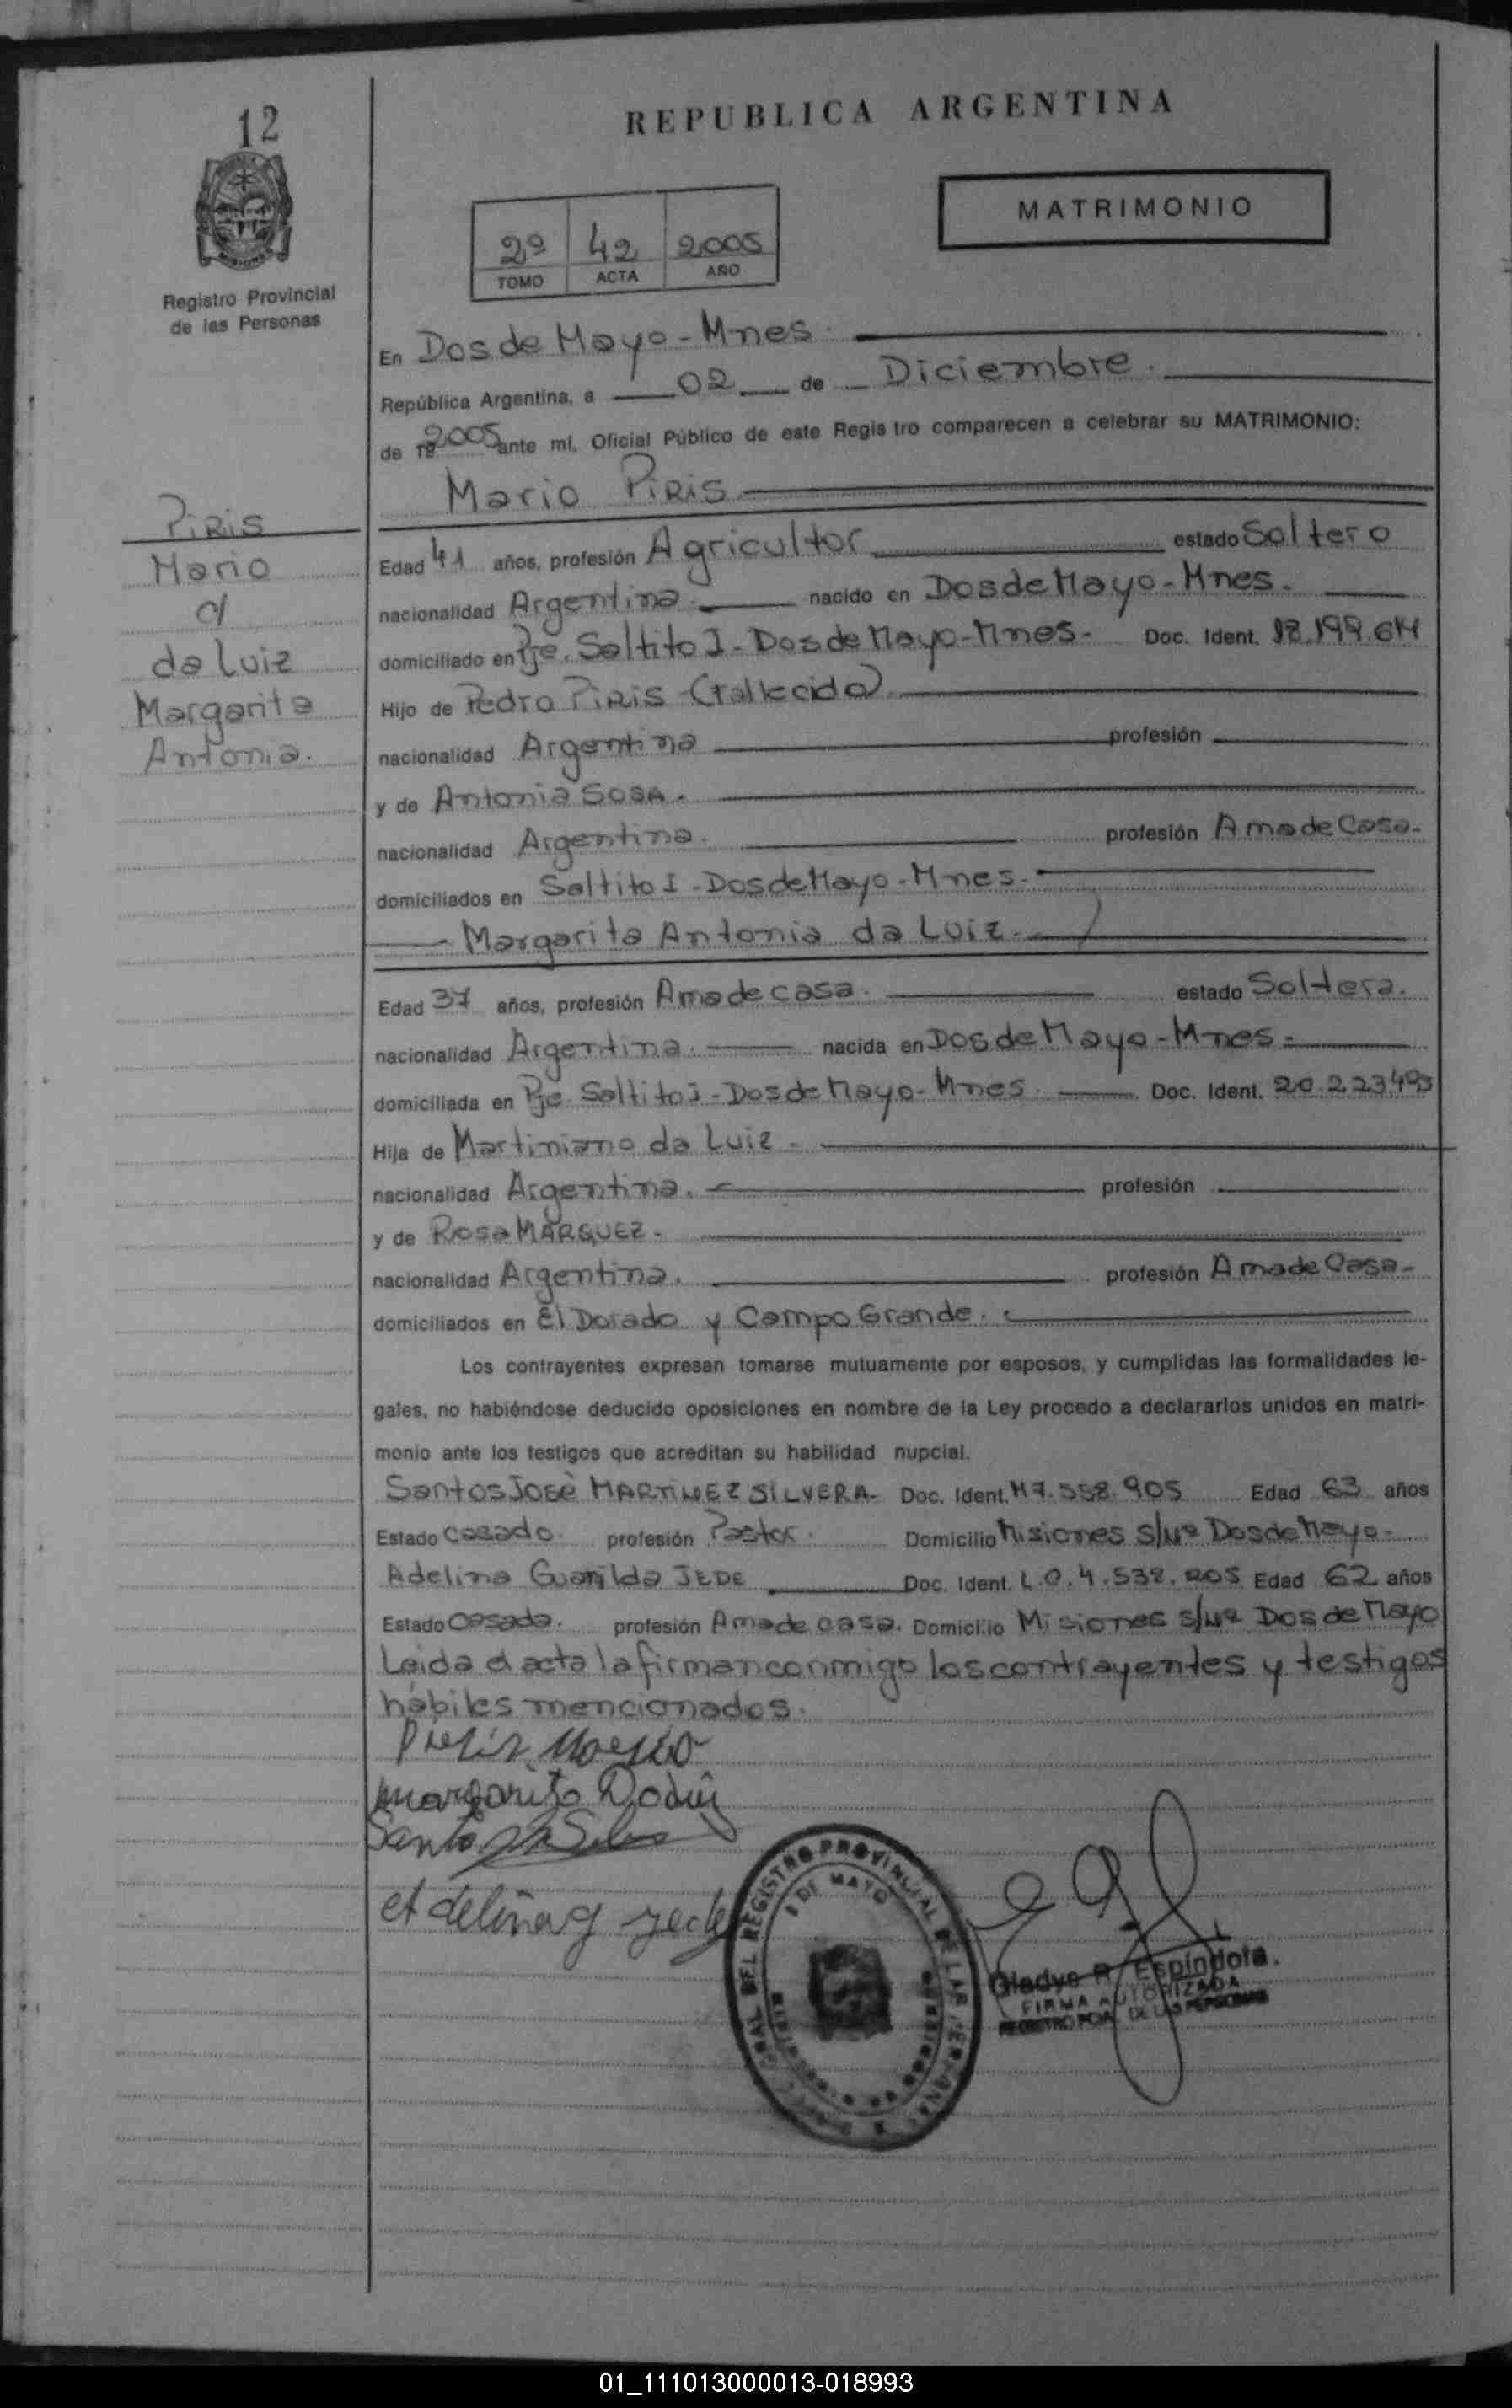 12
REPUBLICA ARGENTINA
MATRIMONIO
2º 42 2005
TOMO ACTA AÑO
Registro Provincial
de las Personas
En Dos de Mayo - Mnes.
República Argentina, a 02 de Diciembre.
de 2005 ante mí, Oficial Público de este Registro comparecen a celebrar su MATRIMONIO:
Mario PIRIS
PIRIS
Mario
c/
da Luiz
Margarita
Antonia.
Edad 41 años, profesión Agricultor estado Soltero
nacionalidad Argentina. nacido en Dos de Mayo - Mnes.
domiciliado en Pje. Saltito I - Dos de Mayo - Mnes - Doc. Ident.
Hijo de Pedro PIRIS - (Fallecido)
nacionalidad Argentina profesión
y de Antonia SOSA.
nacionalidad Argentina. profesión Ama de Casa.
domiciliados en Saltito I - Dos de Mayo - Mnes.
Margarita Antonia da Luiz.
Edad 37 años, profesión Ama de casa. estado Soltera.
nacionalidad Argentina. nacida en Dos de Mayo - Mnes.
domiciliada en Pje. Saltito I - Dos de Mayo - Mnes. Doc. Ident. 20.223.493
Hija de Martiniano da Luiz.
nacionalidad Argentina. profesión
y de Rosa MARQUEZ.
nacionalidad Argentina. profesión Ama de Casa.
domiciliados en El Dorado y Campo Grande.
Los contrayentes expresan tomarse mutuamente por esposos, y cumplidas las formalidades le-
gales, no habiéndose deducido oposiciones en nombre de la Ley procedo a declararlos unidos en matri-
monio ante los testigos que acreditan su habilidad nupcial.
Santos José MARTINEZ SILVERA - Doc. Ident. M 7.558.905 Edad 63 años
Estado Casado. profesión Pastor. Domicilio Misiones s/nº Dos de Mayo -
Adelina JEDE Doc. Ident. L.C. 4.532.205 Edad 62 años
Estado Casada. profesión Ama de casa. Domicilio Misiones s/nº Dos de Mayo
Leida el acta la firman conmigo los contrayentes y testigos
hábiles mencionados.
Piris Mario
Margarita
Santo
Adelina g Jede
REGISTRO PROVINCIAL DE LAS PERSONAS
DE MAYO
Gladys R. Espíndola.
FIRMA AUTORIZADA
REGISTRO PCIAL. DE LAS PERSONAS
01_111013000013-018993